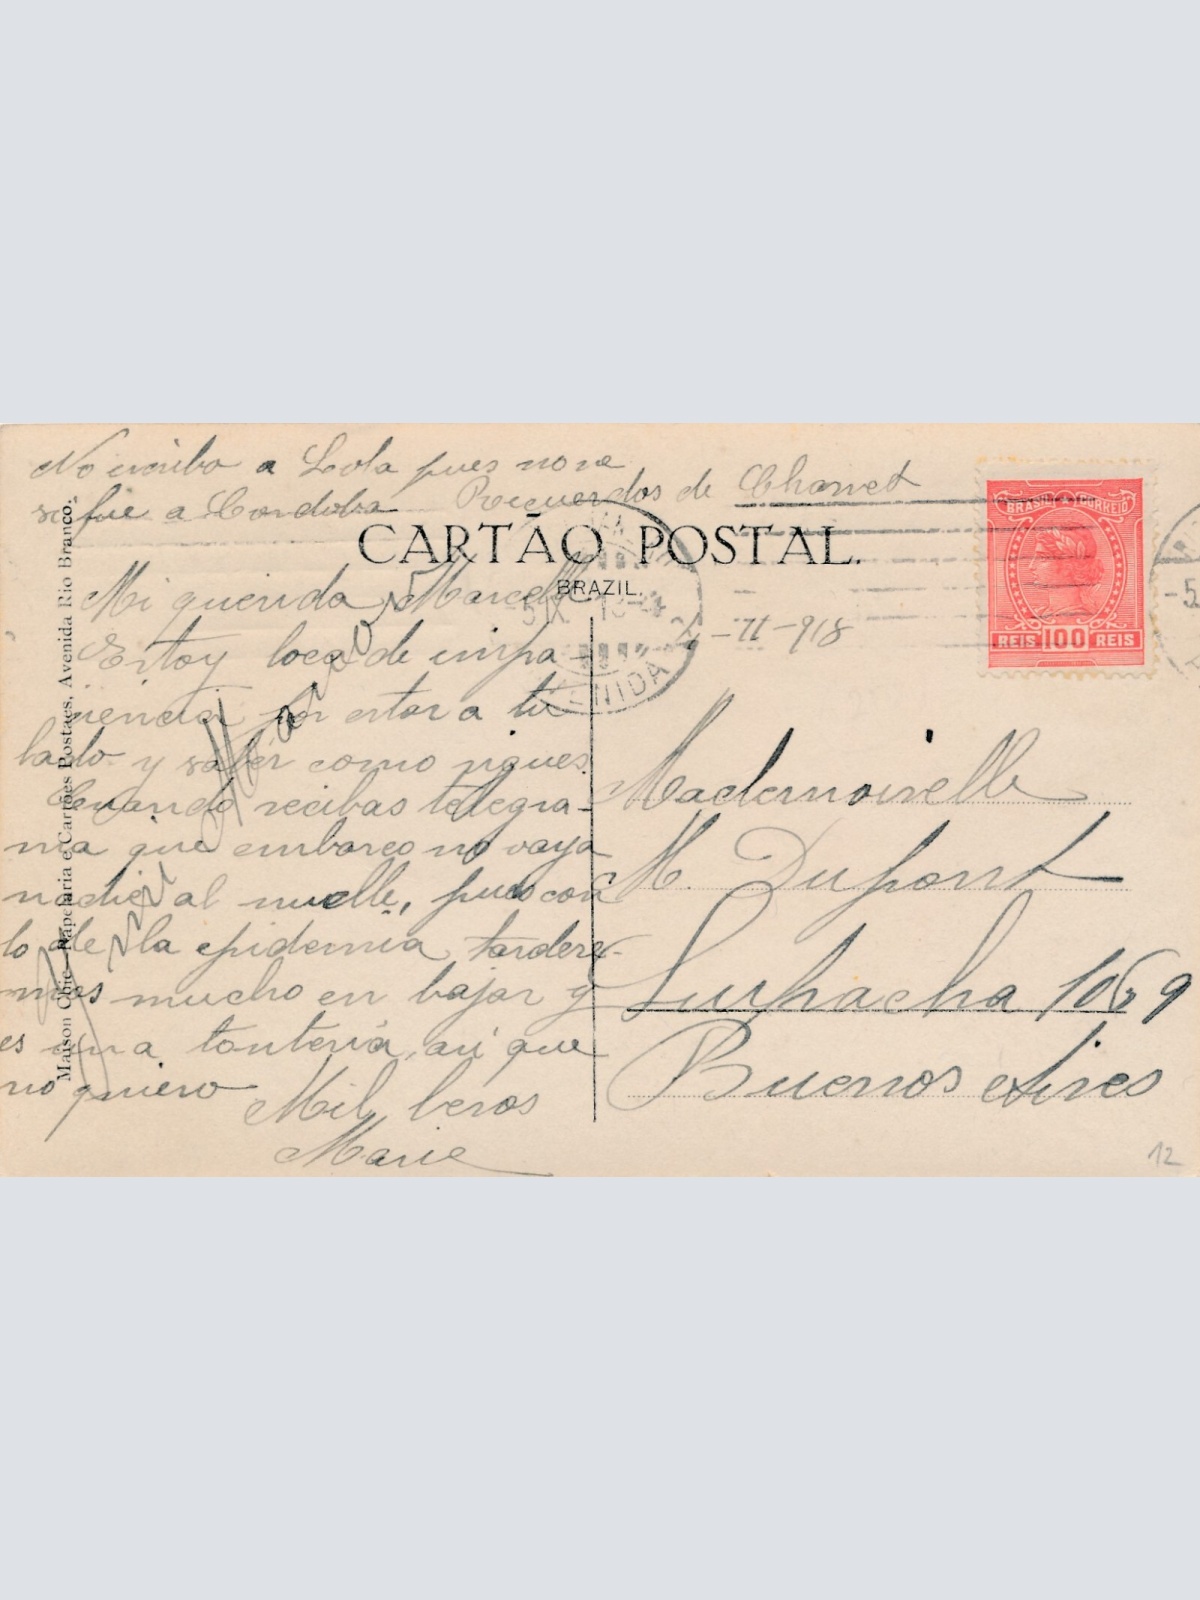 No escribo a Lola pues no se
si fue a Cordoba Recuerdos de Chonet
CARTÃO POSTAL.
BRAZIL.
Mi querida Marcelle
Estoy loca de impa-
ciencia por estar a tu
lado y saber como sigues.
Cuando recibas telegra-
ma que embarco no vaya
nadie al muelle, pues con
lo de la epidemia tardere-
mos mucho en bajar y
es una tonteria, asi que
no quiero Mil besos
Marie
Maison Chic—Papelaria e Cartões Postaes. Avenida Rio Branco.
BRASIL CORREIO
REIS 100 REIS
AVENIDA
-II-918
Mademoiselle
M. Dupont
Suipacha 1069
Buenos Aires
12